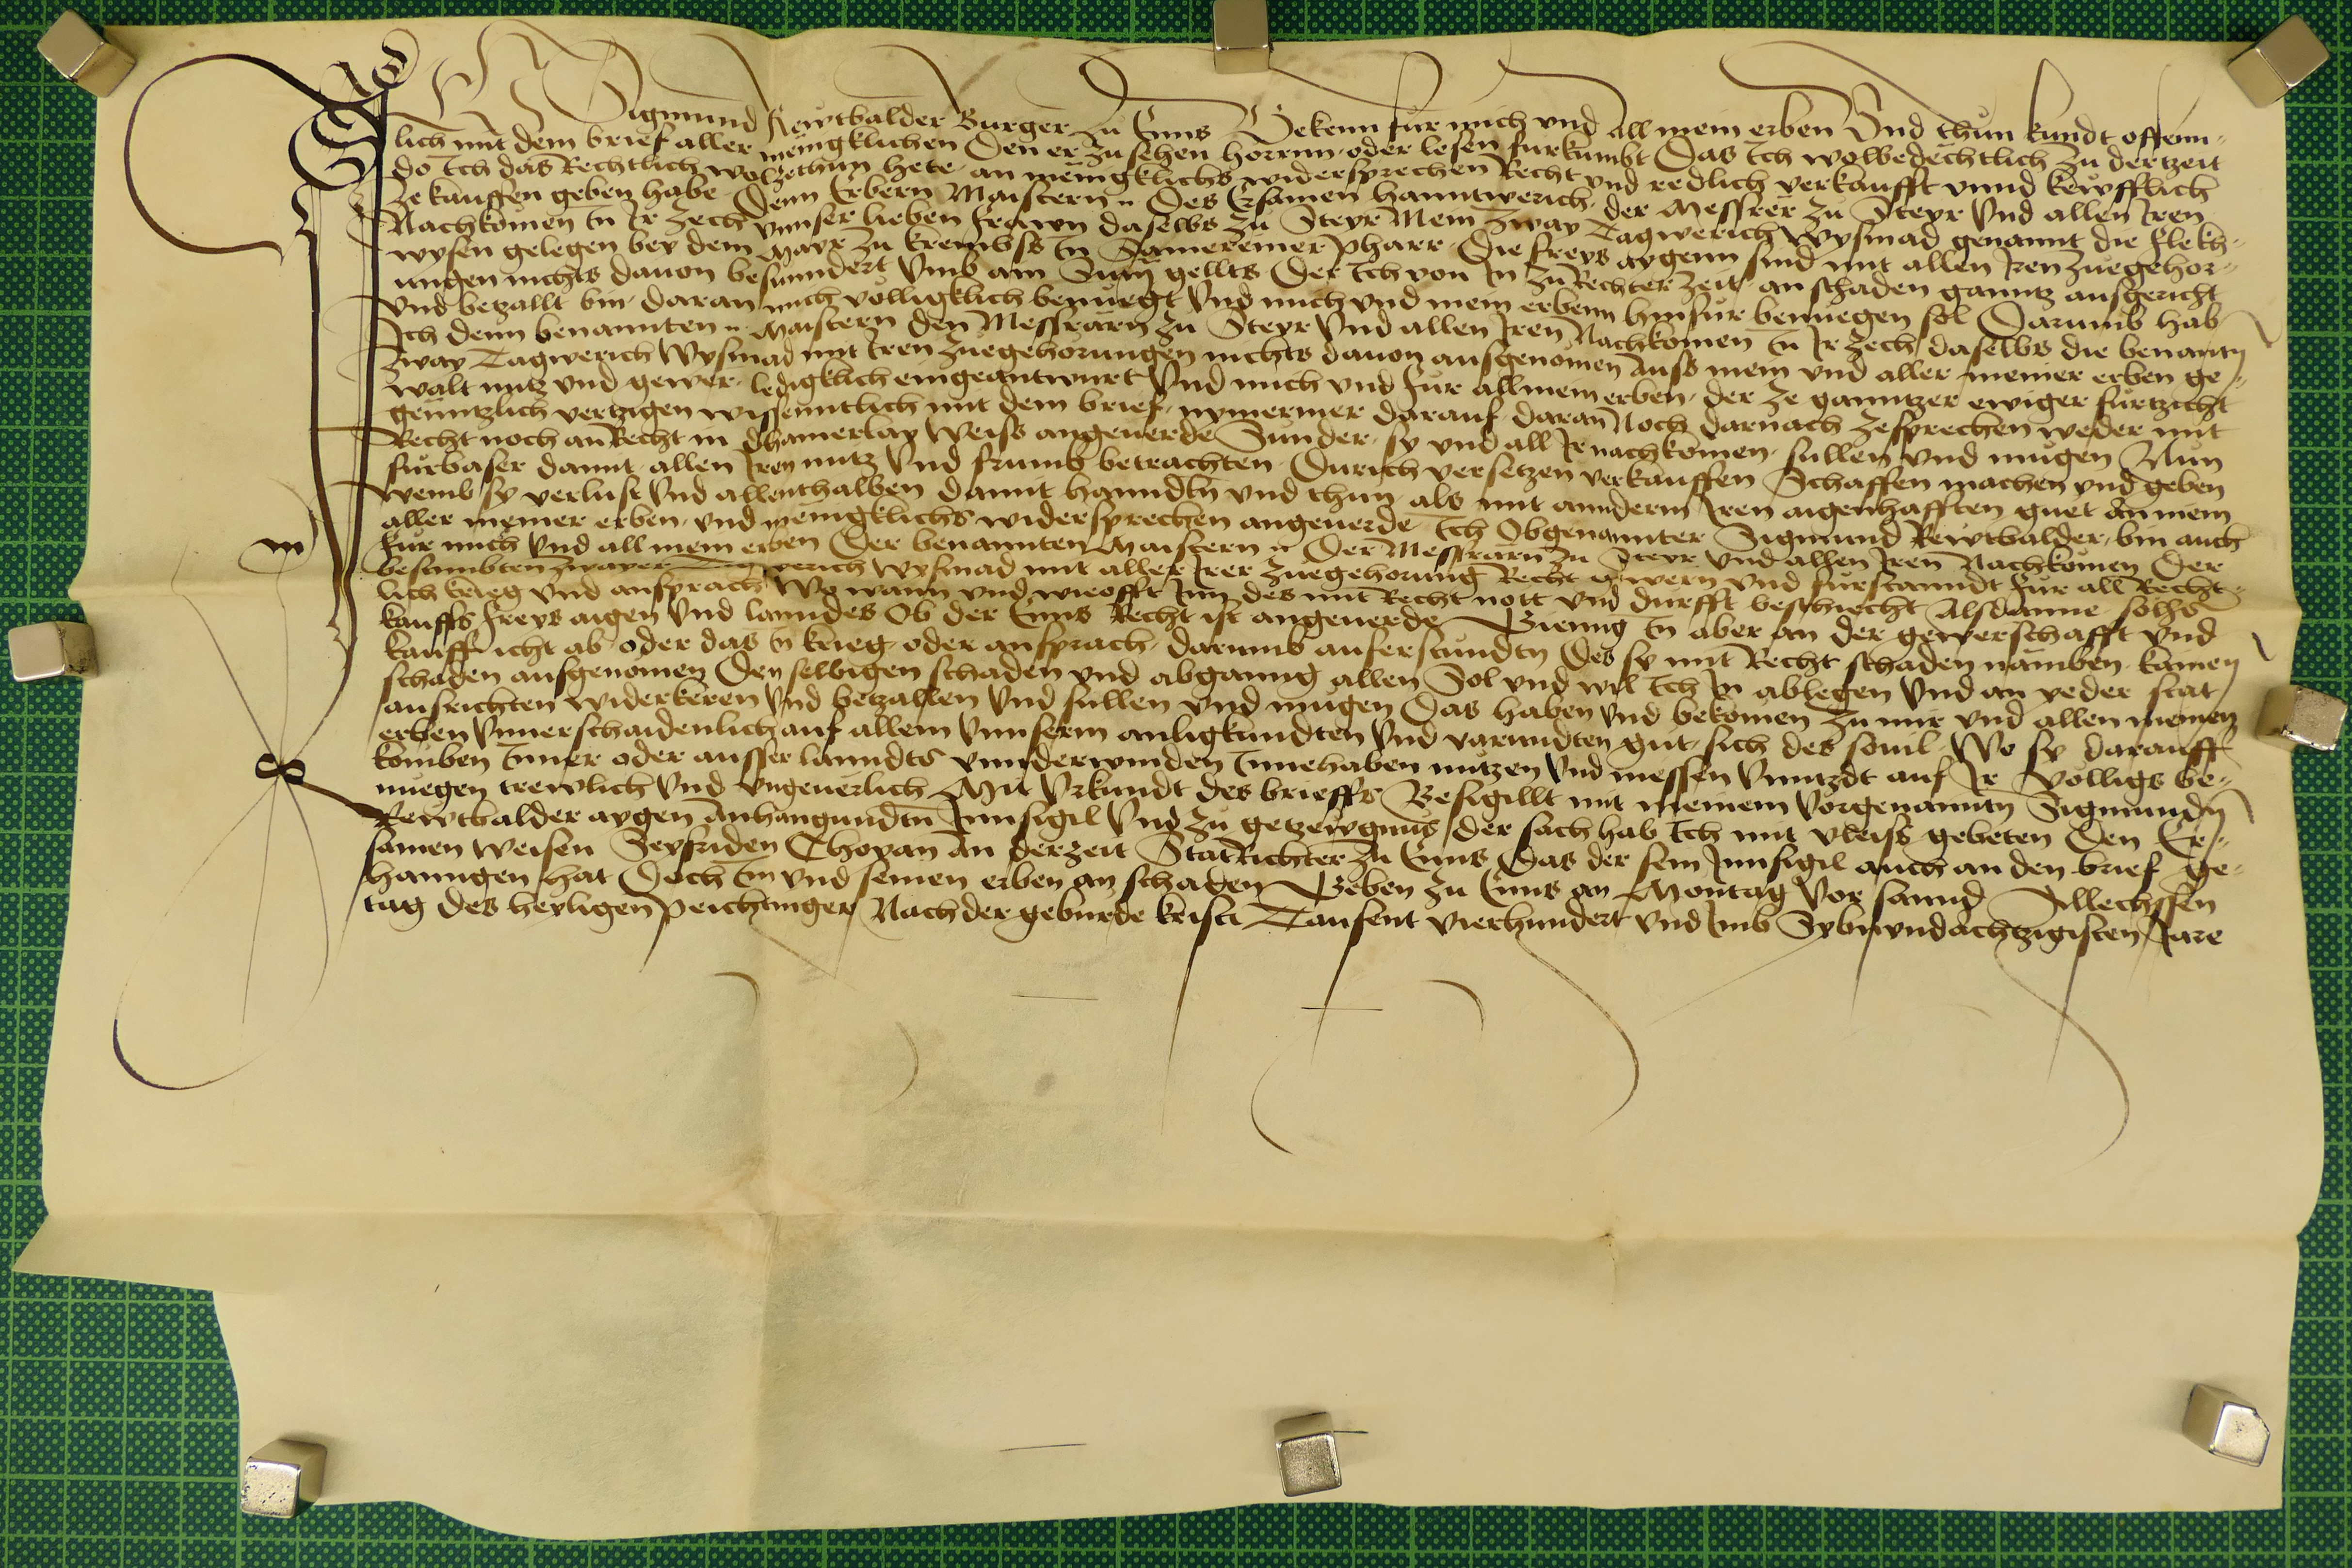 Ich Sigmund Rewtbalder Burger zu Enns Bekenn fur mich vnd all mein erben Vnd thun kundt offenn-
lich mit dem brief aller menigklichen Den er zu sehen horrnn oder lesen furkumbt Das Ich wolbedechtlich zu dertzeit
do Ich das Rechtlich wol gethun hete an menigklichs widersprechen Recht vnd redlich verkaufft vnnd kewfflich
ze kauffen geben habe Denn Erbern Maistern Des Ersamen hanntwerich der Messrer zu Steyr Vnd allen Iren
Nachkomen In Ir Zech vnnser lieben Frawn daselbs zu Steyr Mein Zway Tagwerich Wysmad genannt die Flekh-
wysen gelegen bey dem Mayr zu krembss In pharr Die freys aygenn sind mit allen Iren zuegehor-
ungen nichts dauon besunndert Vmb ain Sum gellts Der Ich von In zu Rechter zeit an schaden ganntz ausgericht
Vnd betzallt bin daran mich volligklich benuegt Vnd mich vnd mein erbenn hinfur benuegen sol Darumb hab
Ich denn benannten Maistern den Messrarn zu Steyr Vnd allen Iren Nachkomen In Ir Zech daselbs die benantn
Zway Tagwerich Wysmad mit Iren zuegehorungen nichts dauon ausgenomen Auss mein vnd aller meiner erben ge-
walt nutz vnd gewer ledigklich eingeantwurt Vnd mich vnd fur all mein erben der ze ganntzer ewiger furtzicht
genntzlich vertzigen wissenntlich mit dem brief nymermer darauf daran Noch darnach zesprechen weder mit
Recht noch an Recht in dhainerlay Weiss angeuerde Sunder sy vnd all Ir nachkomen sullen vnd mugen Nun
furbaser damit allen Iren nutz Vnd frumb betrachten Durich versetzen verkauffen Schaffen machen vnd geben
wemb sy verlust Vnd allenthalben damit hanndln vnd thun als mit annderm Iren aigenhafften guet an mein
aller meiner erben vnd menigklichs widersprechen angeuerde Ich Obgenannter Sigmund Rewtbalder bin auch
fur mich Vnd all mein erben Der benannten Maistern Der Messrarn zu Steyr Vnd allen Iren Nachkomen Der
besambten zwayer Tagwerich Wysmad mit aller Irer zuegehorung Recht gewern vnd furstanndt fur all Recht-
lich krieg vnd ansprach Wo wann vnd wieofft Inn des mit Recht nott vnd durfft beschiecht Alsdanne solhs
kauffs freys aigen Vnd lanndes Ob der Enns Recht ist angeuerde Gienng In aber an der gewerschafft vnd
kauff icht ab oder das In krieg oder ansprach darumb auferstundtn Des sy mit Recht schaden namben kamen
schaden ausgenomen Den selbigen schaden vnd abganng allen Sol vnd wil Ich In ablegen Vnd an yeder stat
ausrichten widerkeren Vnd betzallen Vnd sullen vnd mugen Das haben vnd bekomen zu mir vnd allen meinen
erben Vnuerschaidenlich auf allem Vnnserm anligkundten Vnd varundten gut sich des souil Wo sy darauff
komben Inner oder ausser lanndts vnnderwinden Innehaben nutzen Vnd niessen Vnntzdt auf Ir volligs be-
nuegen trewlich Vnd vngeuerlich Mit Vrkundt des brieffs Besigillt mit meinem Vorgenanntn Sigmundn
Rewtbalder aygen Anhangundtn Innsigil Vnd zu getzewgnus der sach hab Ich mit vleiss gebeten Den Er-
samen Weisen Seyfriden Choxan An derzeit Statrichter zu Enns Das der sein Innsigil auch an den brief ge-
hanngen hat Doch Im vnd seinen erben an schaden Geben zu Enns an Montag Vor sannd
tag des heyligen Peichtinger Nach der geburde kristi Tausent Vierhundert vnd Imb Sybnvndachtzigisten Jare